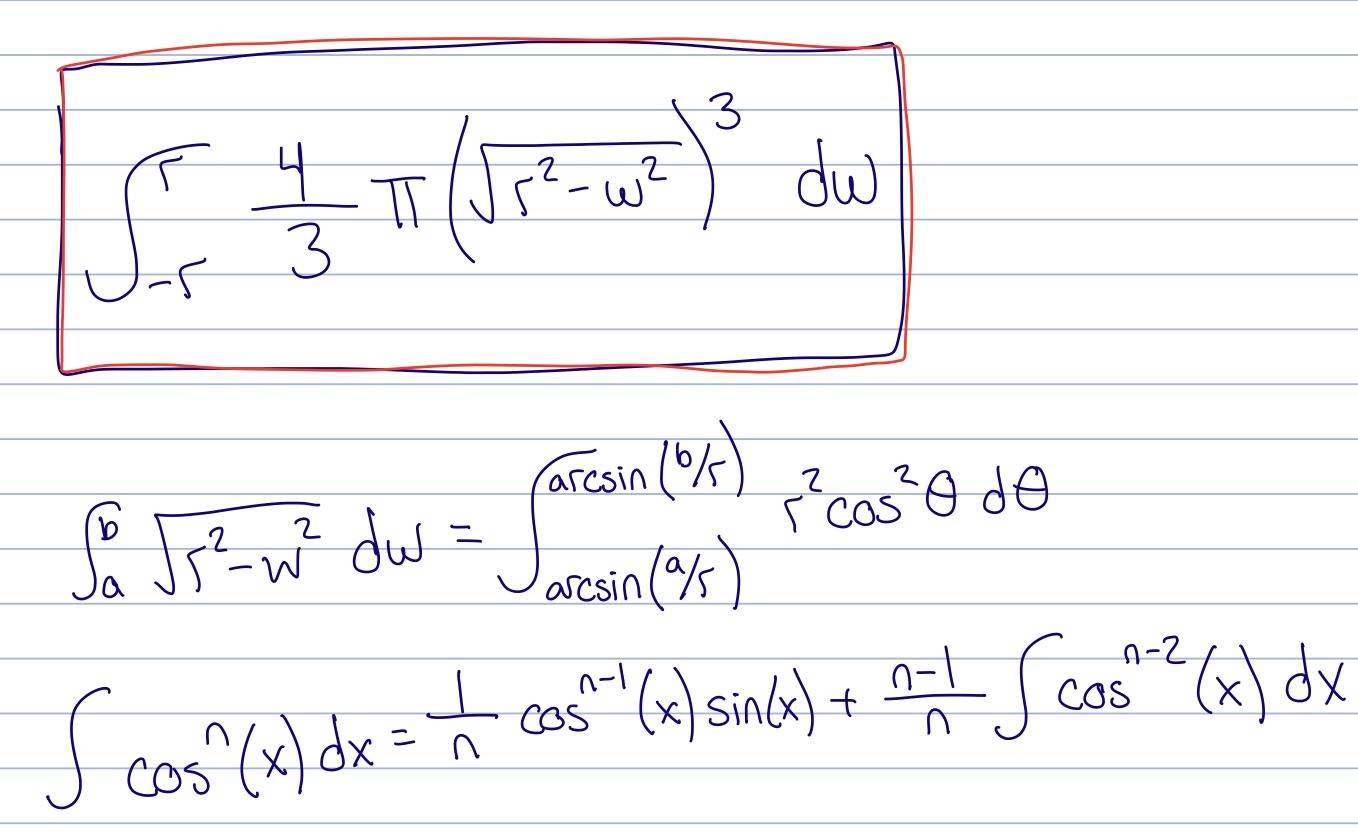 ∫_{-r}^{r} 4/3 π (√(r² - w²))³ dw
∫_a^b √(r² - w²) dw = ∫_{arcsin(a/r)}^{arcsin(b/r)} r² cos² θ dθ
∫ cosⁿ(x) dx = 1/n cosⁿ⁻¹(x) sin(x) + (n-1)/n ∫ cosⁿ⁻²(x) dx